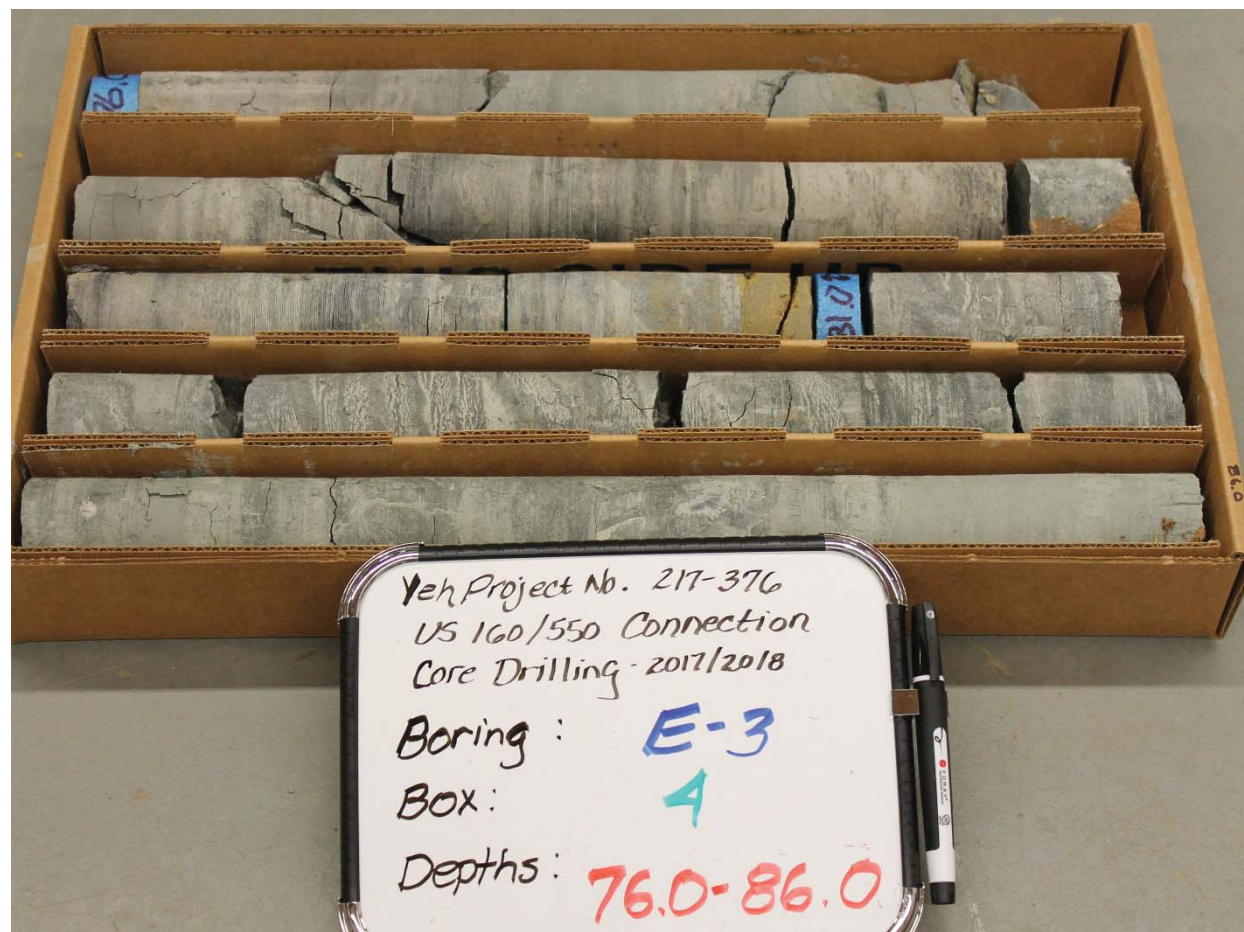 76.0
81.0
86.0
Yeh Project No. 217-376
US 160/550 Connection
Core Drilling - 2017/2018
Boring : E-3
Box: 4
Depths: 76.0-86.0